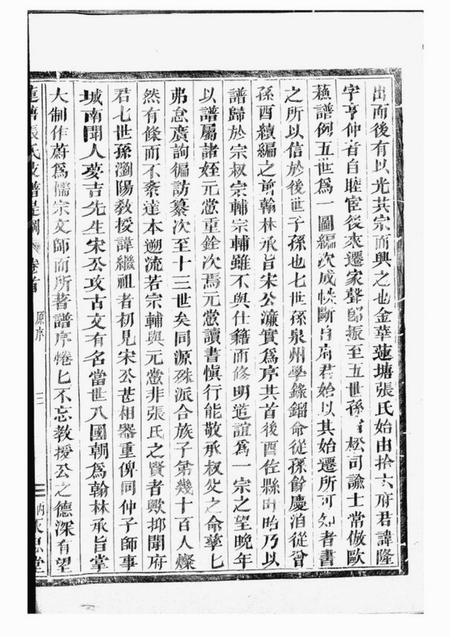 出而後有以光其宗而興之也金華蓮塘張氏始由拾六府君諱隆
字亨仲者自睦宦後來遷家聲節振至五世孫 松司諭士常倣歐
蘇譜例五世爲一圖編次成帙斷自府君始以其始遷所可知者書
之所以信於後世子孫也七世孫泉州學錄鎦命從孫餘慶洎從曾
孫酉續編之前翰林承旨宋公濂實爲序其首後酉佐縣 乃以
譜歸於宗叔宗輔宗輔雖不與仕籍而修明道誼爲一宗之望晚年
以譜屬諸姪元鼖重銓次焉元鼖讀書愼行能敬承叔父之命孳七
弗怠廣詢徧訪纂次至十三世矣同源殊派合族子弟幾十百人燦
然有條而不紊達本遡流若宗輔與元鼖非張氏之賢者歟抑聞府
君七世孫瀏陽敎授諱繼祖者初見宋公甚相器重俾同仲子師事
城南聞人夢吉先生宋公攻古文有名當世入國朝爲翰林承旨掌
大制作蔚爲儒宗文師而所著譜序惓七不忘敎授公之德深有望
蓮塘張氏支譜是綱 卷首 原序 三